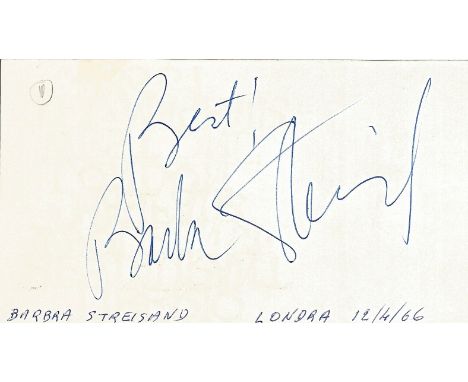 Best!
Barbra Streisand
BARBRA STREISAND LONDRA 12/4/66